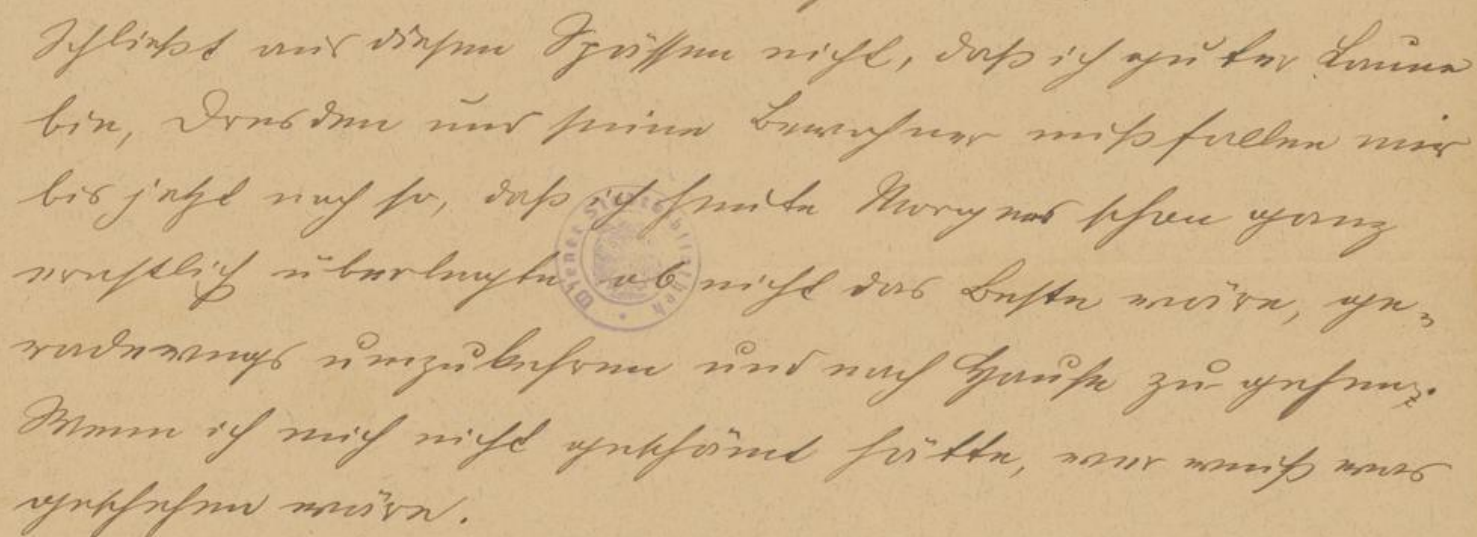 Schließt aus diesen Spässen nicht, daß ich guter Laune
bin, Dresden und seine Bewohner mißfallen mir
bis jetzt noch so, daß ich heute Morgens schon ganz
ernstlich überlegte, ob nicht das Beste wäre, ge-
radewegs umzukehren und nach Hause zu gehen.
Wenn ich mich nicht geschämt hätte, wer weiß was
geschehen wäre.